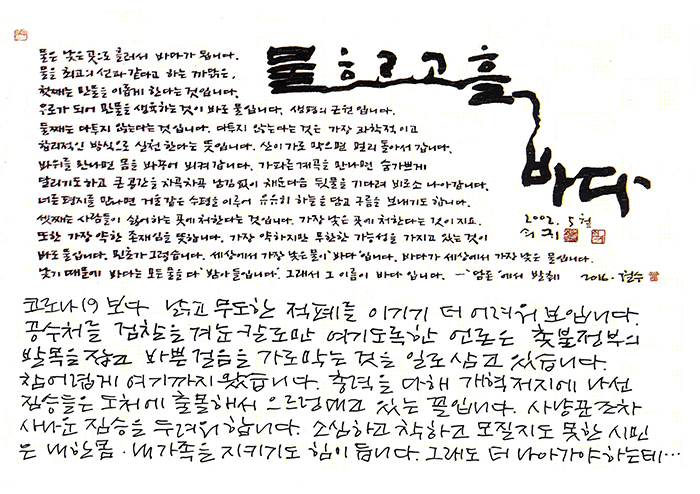 물은 낮은 곳으로 흘러서 바다가 됩니다.
물을 최고의 선과 같다고 하는 까닭은,
첫째는 만물을 이롭게 한다는 것입니다.
우로가 되어 만물을 생육하는 것이 바로 물입니다. 생명의 근원입니다.
둘째는 다투지 않는다는 것입니다. 다투지 않는다는 것은 가장 과학적이고
합리적인 방식으로 실천한다는 뜻입니다. 산이 가로막으면 멀리 돌아서 갑니다.
바위를 만나면 몸을 바꾸어 비켜 갑니다. 가파른 계곡을 만나면 숨가쁘게
달리기도 하고 큰 공간을 차곡차곡 남김없이 채운 다음 뒷물을 기다려 비로소 나아갑니다.
너른 평지를 만나면 거울같은 수평을 이루어 유유히 하늘을 담고 구름을 보내기도 합니다.
셋째는 사람들이 싫어하는 곳에 처한다는 것입니다. 가장 낮은 곳에 처한다는 것이지요.
또한 가장 약한 존재임을 뜻합니다. 가장 약하지만 무한한 가능성을 가지고 있는 것이
바로 물입니다. 민초가 그렇습니다. 세상에서 가장 낮은 물이 '바다'입니다. 바다가 세상에서 가장 낮은 물입니다.
낮기 때문에 바다는 모든 물을 다 '받아들입니다'. 그래서 그 이름이 바다입니다. - '담론'에서 발췌 2016. 철수
물 흐르고 흘 바다
2002. 5월
코로나19 보다 낡고 무도한 적폐를 이기기 더 어려워 보입니다.
공수처를 검찰을 겨눈 칼로만 여기도록 한 언론은 촛불정부의
발목을 잡고 바쁜 걸음을 가로막는 것을 일로 삼고 있습니다.
참 어렵게 여기까지 왔습니다. 총력을 다해 개혁저지에 나선
짐승들은 도처에 출몰해서 으르렁대고 있는 꼴입니다. 사냥꾼조차
사나운 짐승을 두려워합니다. 소심하고 착하고 모질지도 못한 시민
은 내 한몸·내 가족을 지키기도 힘이 듭니다. 그래도 더 나아가야 하는데…